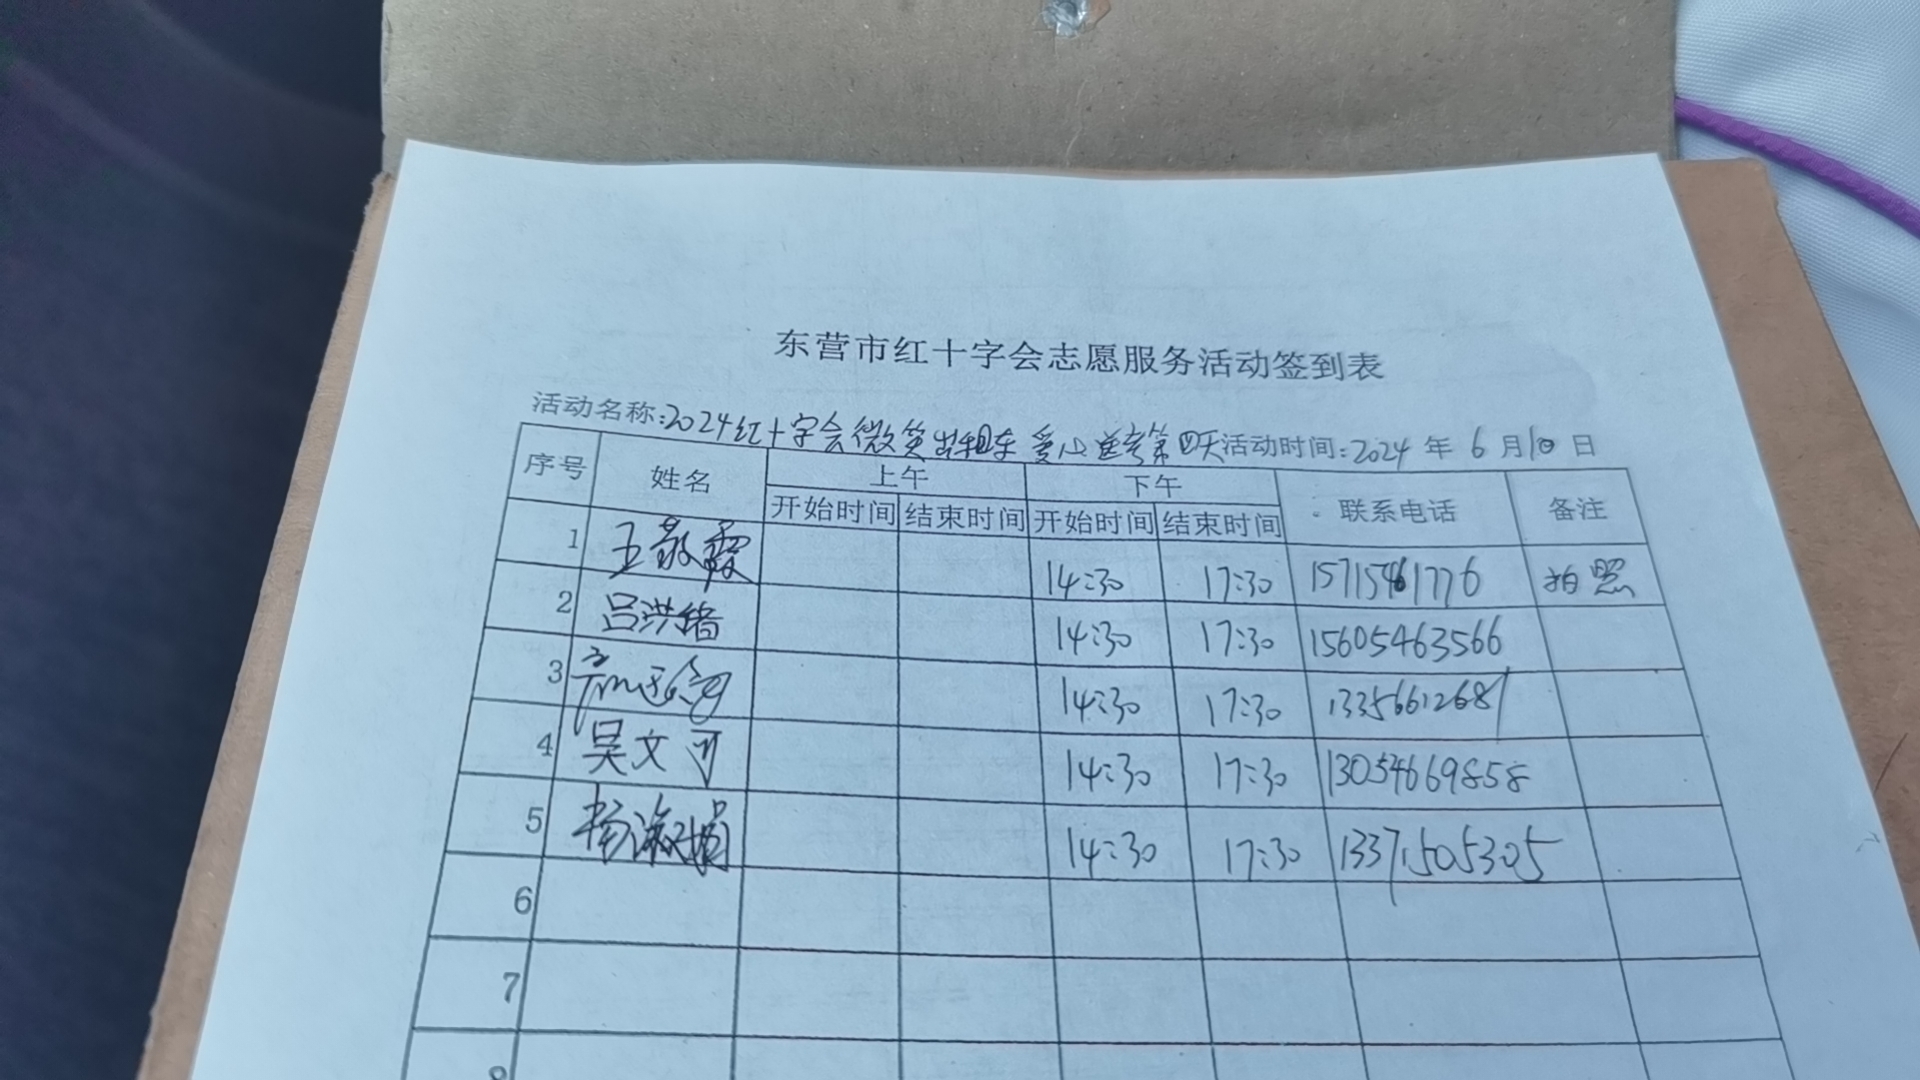 东营市红十字会志愿服务活动签到表
活动名称:2024红十字会微笑出租车爱心送考第四天 活动时间:2024年6月10日
序号 姓名 上午 下午 联系电话 备注
开始时间 结束时间 开始时间 结束时间
1 王敬霞 14:30 17:30 15715461776 拍照
2 吕洪绪 14:30 17:30 15605463566
3 14:30 17:30 13356612681
4 吴文可 14:30 17:30 13054669858
5 杨淑娟 14:30 17:30 13371505305
6
7
8